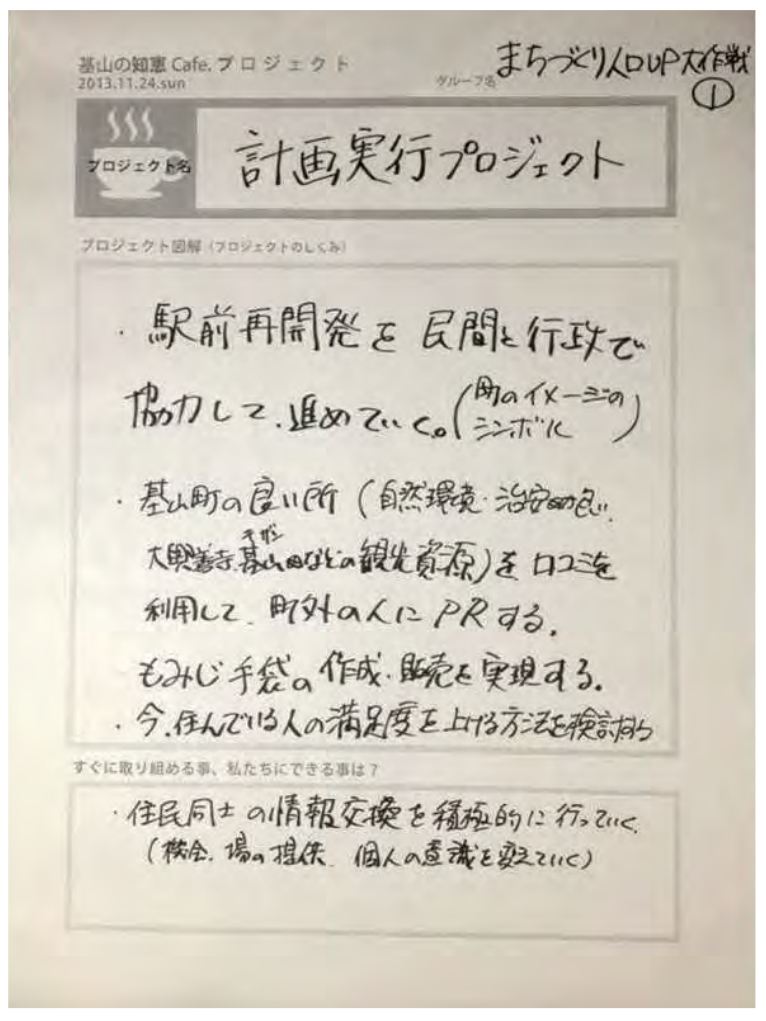 基山の知恵 Cafe. プロジェクト
2013.11.24.sun
グループ名 まちづくり人口UP大作戦
①
プロジェクト名 計画実行プロジェクト
プロジェクト図解（プロジェクトのしくみ）
・駅前再開発を民間と行政で
協力して、進めていく。(町のイメージの
シンボル)
・基山町の良い所(自然環境・治安の良い、
キザン
大興善寺、基山などの観光資源)を口コミを
利用して、町外の人にPRする。
もみじ手袋の作成・販売を実現する。
・今、住んでいる人の満足度を上げる方法を検討する
すぐに取り組める事、私たちにできる事は？
・住民同士の情報交換を積極的に行っていく。
(機会、場の提供、個人の意識を変えていく)